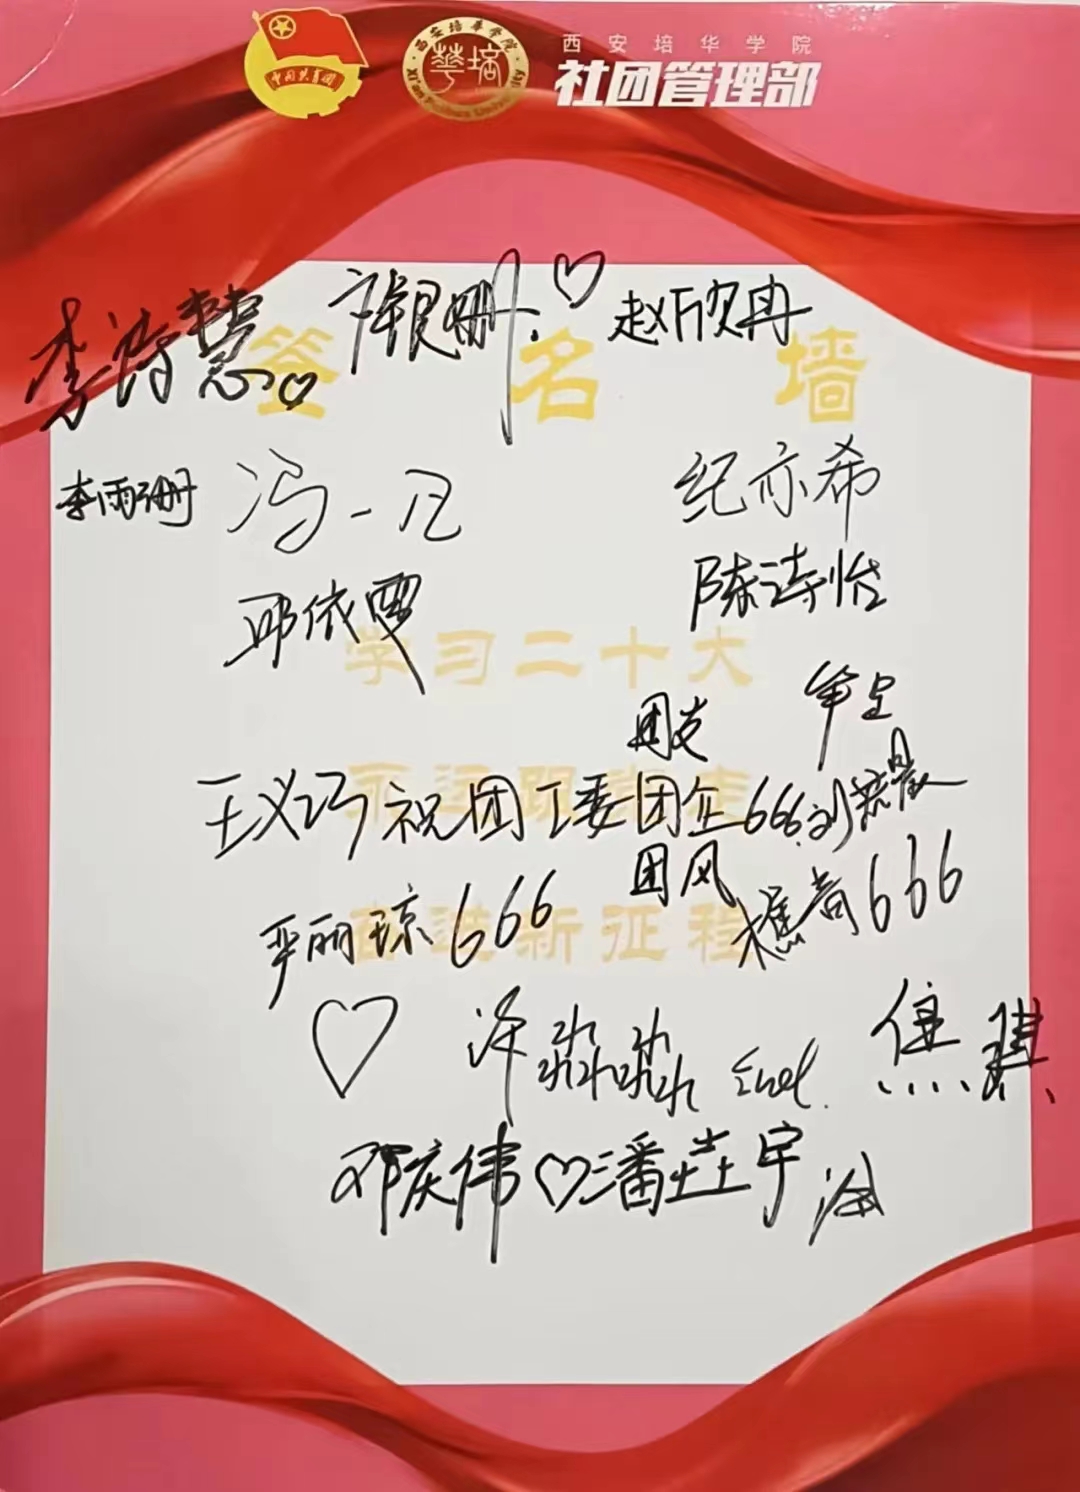 中国共青团
西安培华学院
Xi'an Peihua University
華培
西安培华学院
社团管理部
签名墙
李诗慧
赵欣冉
李雨珊 冯一凡 纪亦希
邱依雯 陈诗怡
学习二十大
团支
永远跟党走
王义巧祝团工委团企666.刘
团风
奋进新征程
严丽琼666
666
淼淼 End.
焦琪
邓庆伟 潘垚宇